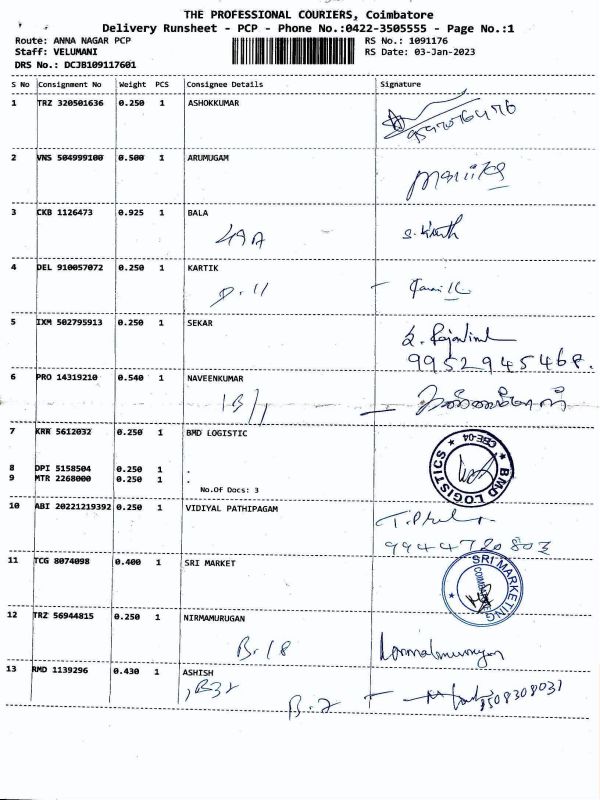 THE PROFESSIONAL COURIERS, Coimbatore
Delivery Runsheet - PCP - Phone No.:0422-3505555 - Page No.:1
Route: ANNA NAGAR PCP RS No.: 1091176
Staff: VELUMANI RS Date: 03-Jan-2023
DRS No.: DCJB109117601
S No Consignment No Weight PCS Consignee Details Signature
1 TRZ 320501636 0.250 1 ASHOKKUMAR
2 VNS 504999100 0.500 1 ARUMUGAM
3 CKB 1126473 0.925 1 BALA
49A
4 DEL 910057072 0.250 1 KARTIK
D.11
5 IXM 502795913 0.250 1 SEKAR
9952945468.
6 PRO 14319210 0.540 1 NAVEENKUMAR
1B/1
7 KRR 5612032 0.250 1 BMD LOGISTIC
B M D LOGISTICS CBE-04
8 DPI 5158504 0.250 1 .
9 MTR 2268000 0.250 1 .
No.Of Docs: 3
10 ABI 20221219392 0.250 1 VIDIYAL PATHIPAGAM
9944720803
11 TCG 8074098 0.400 1 SRI MARKET
SRI MARKETING
12 TRZ 56944815 0.250 1 NIRMAMURUGAN
B.18
13 RMD 1139296 0.430 1 ASHISH
B32
B.2